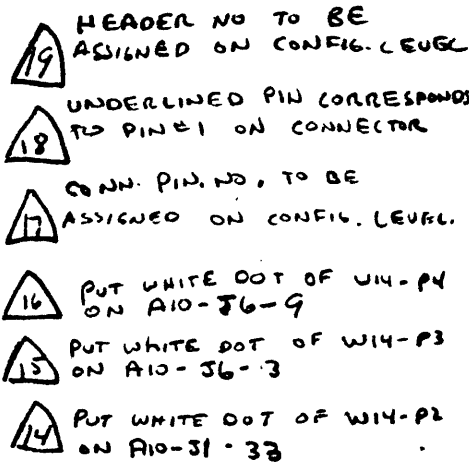 19 HEADER NO TO BE
ASSIGNED ON CONFIG. LEVEL
18 UNDERLINED PIN CORRESPONDS
TO PIN #1 ON CONNECTOR
17 CONN. PIN. NO. TO BE
ASSIGNED ON CONFIG. LEVEL.
16 PUT WHITE DOT OF W14-P4
ON A10-J6-9
15 PUT WHITE DOT OF W14-P3
ON A10-J6-3
14 PUT WHITE DOT OF W14-P2
ON A10-J1-33